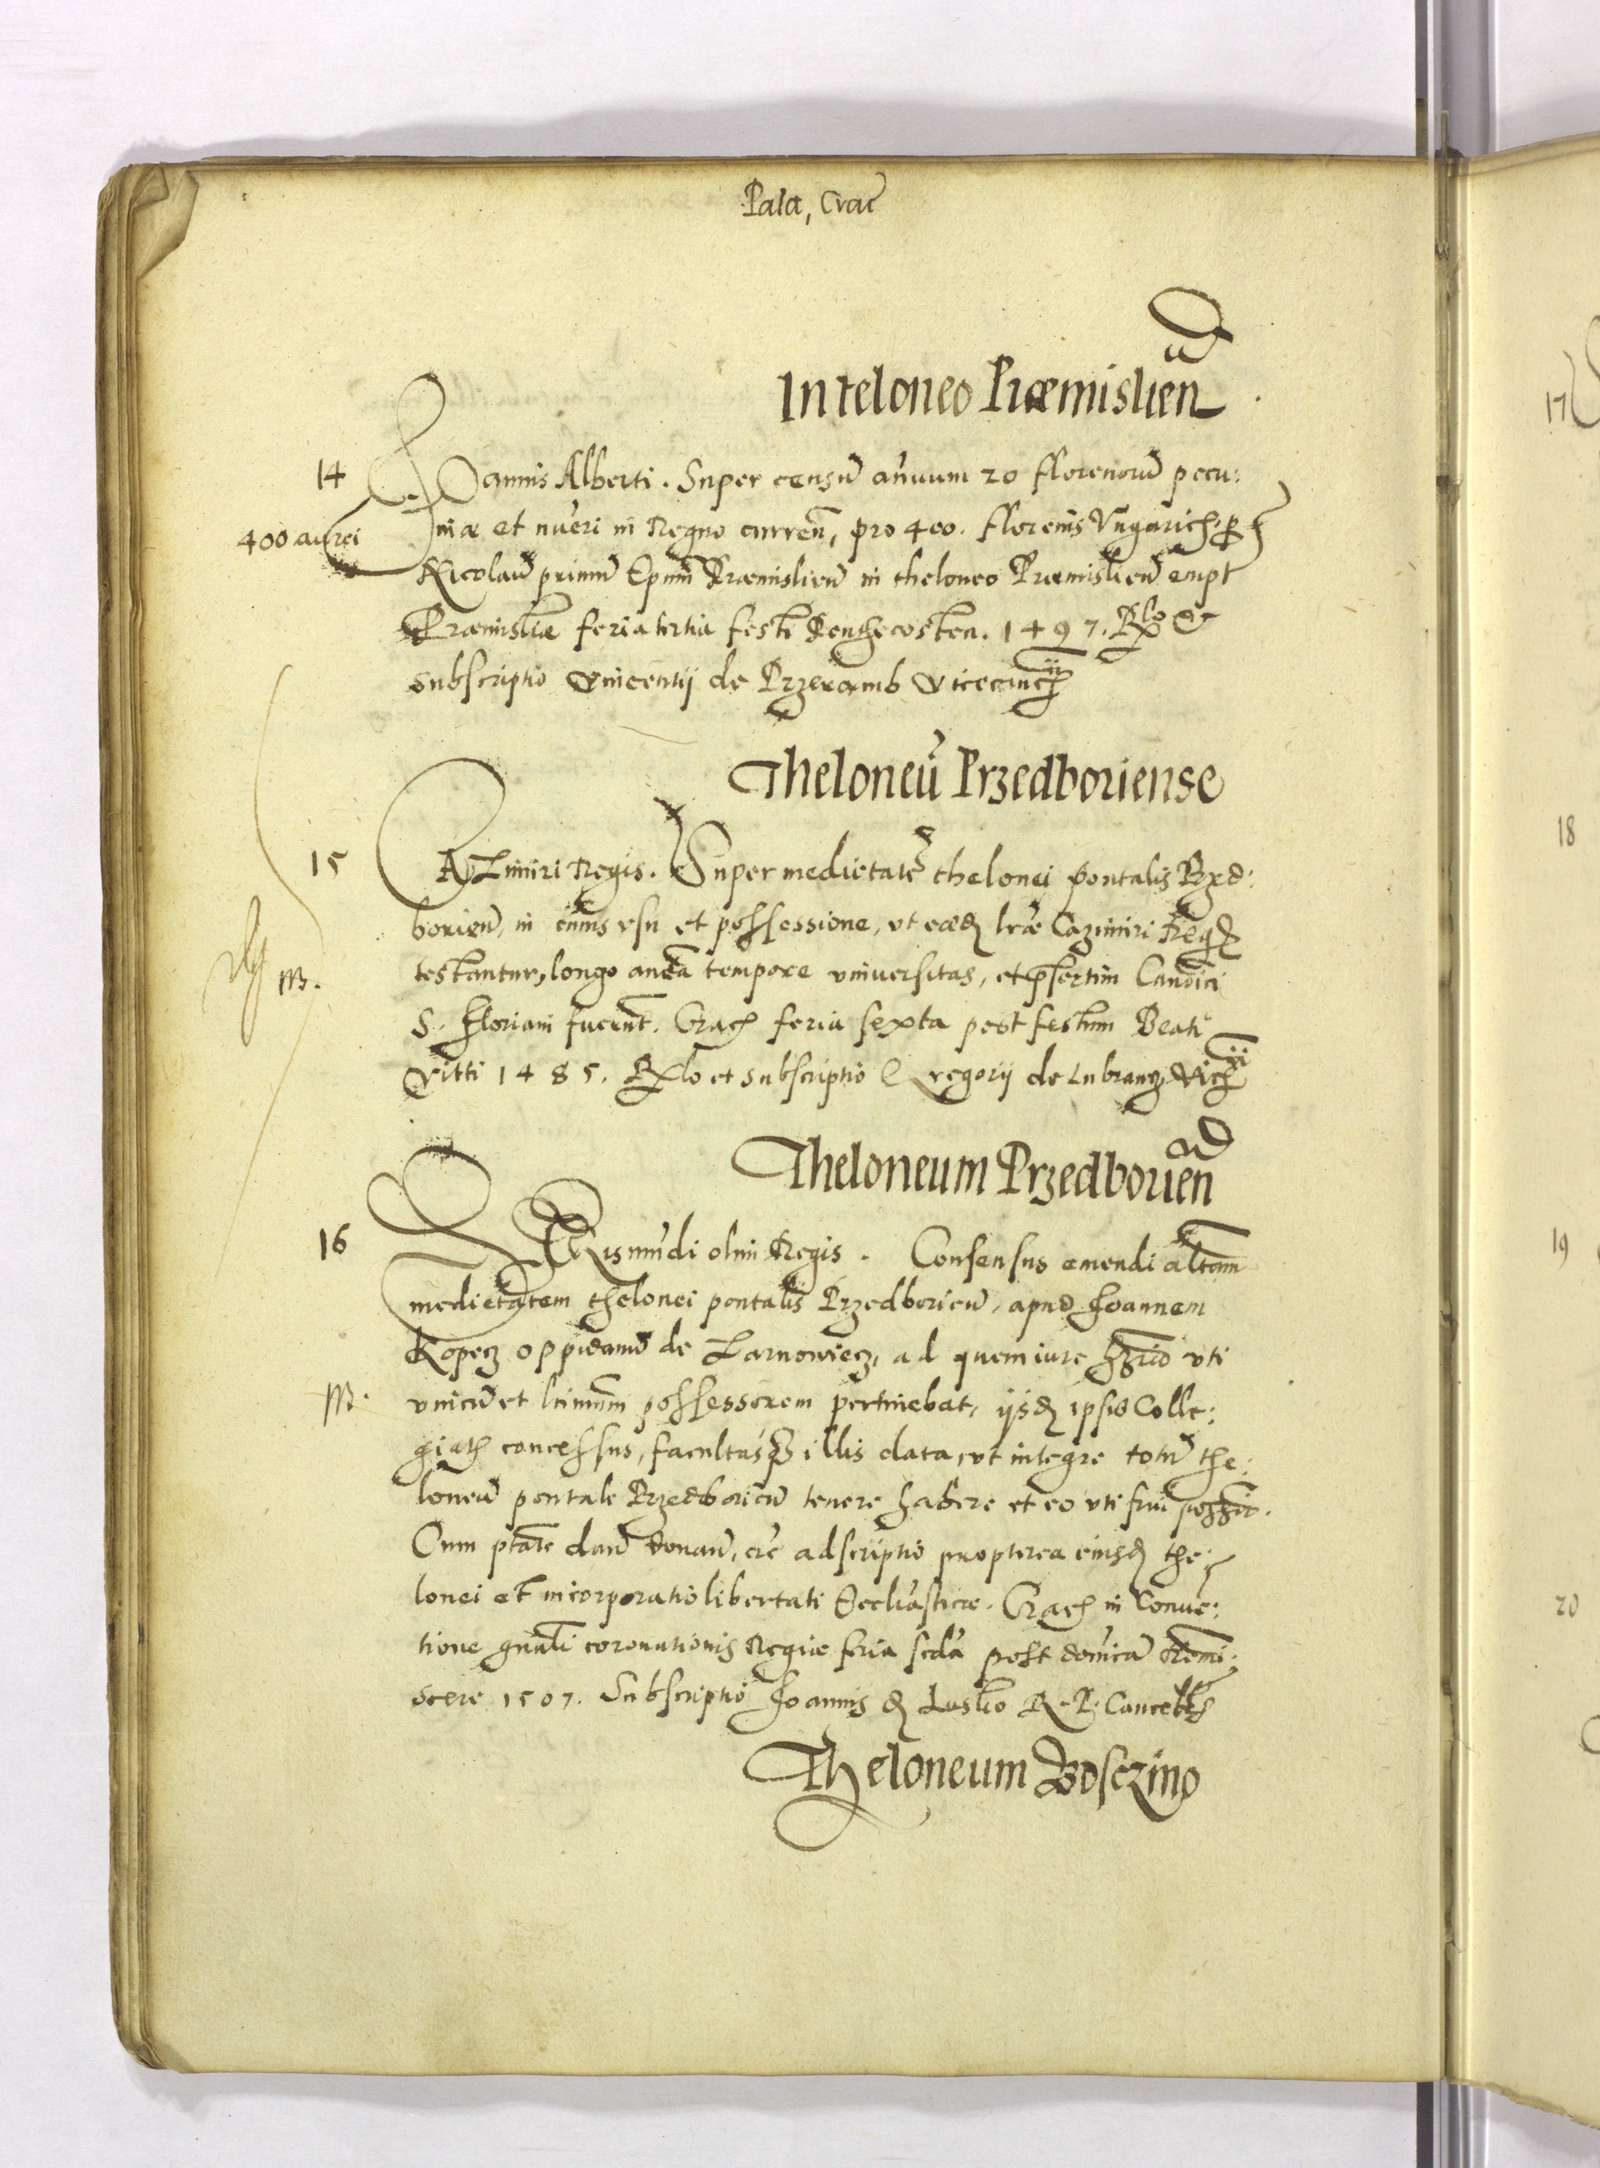 Pala, Crac
In teloneo Præmislien
14 Joannis Alberti. Super censū añuum 20 florenorū pecu:
400 aurei niæ et nūeri in Regno curren̄, pro 400. florenis Vngarich, p
Nicolaū primū Epum Præmislien̄ in theloneo Præmislien̄ empt
Præmisliæ feria tertia festi Penthecosten. 1497. Rlo et
subscriptio Vincentij de Przeramb Vicecanc
Theloneū Przedboriense
15 CAZimiri Regis. Super medietatē thelonei pontalis Przed:
borien̄, in cuius vsu et possessione, vt eæd lræ Cazimiri Reg
testantur, longo antea tempore vniversitas, et psertim Canōici
M. S. Floriani fuerūt. Crac feria sexta post festum Beati
Vitti 1485. Rlo et subscriptio Gregorij de Lubrancz Vic
Theloneum Przedborien
16 SIgismūdi olim Regis. Consensus emendi alteram
medietatem thelonei pontalis Przedborien̄, apud Joannem
Kopecz oppidanū de Tarnowiecz, ad quem iure hærio vti
M. vnicū et ltimum possessorem pertinebat, ijsd ipsis Colle:
giath concessus, facultasq illis data, vt integre totū the:
loneū pontale Przedborien̄ tenere habere et eo vti frui possit.
Cum ptate dan̄ donan̄, etc adscriptio propterea eiusd the:
lonei et incorporatio libertati Eccliasticæ. Crac in Conue:
tione gnali coronationis Regiæ feria scda post dōnicā Remi:
scere 1507. Subscriptio Joannis d Lasko R. P. Cancell
Theloneum Bosczino
17
18
19
20